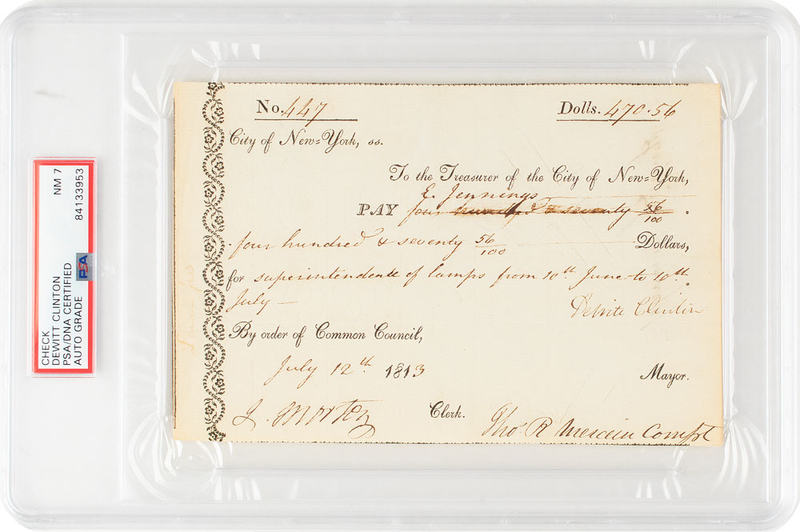 No. 447 Dolls. 470.56
City of New=York, ss.
To the Treasurer of the City of New=York,
E. Jennings
PAY four hundred & seventy 56/100
four hundred & seventy 56/100 Dollars,
for superintendents of lamps from 10th June to 10th
July —
Dewitt Clinton
By order of Common Council,
July 12th 1813 Mayor.
J. Morton Clerk. Tho R Mercein Compt
CHECK NM 7
DEWITT CLINTON 84133953
PSA/DNA CERTIFIED
AUTO GRADE PSA